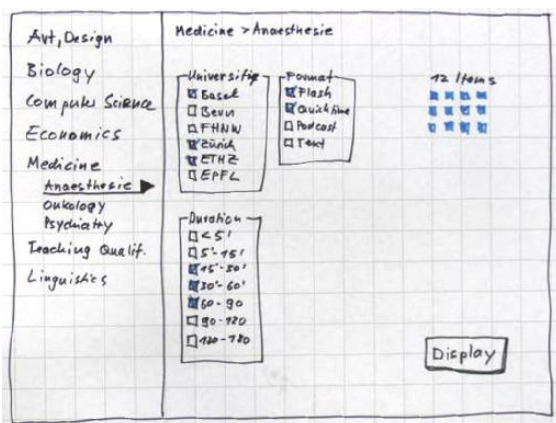 Art, Design
Biology
Computer Science
Economics
Medicine
Anaesthesie
Onkology
Psychiatry
Teaching Qualif.
Linguistics
Medicine > Anaesthesie
Basel
Bern
FHNW
Zürich
ETHZ
EPFL
Format
Flash
Quicktime
Podcast
Text
Duration
<5'
5'-15'
15'-30'
30'-60'
60-90
90-120
120-180
12 Items
Display